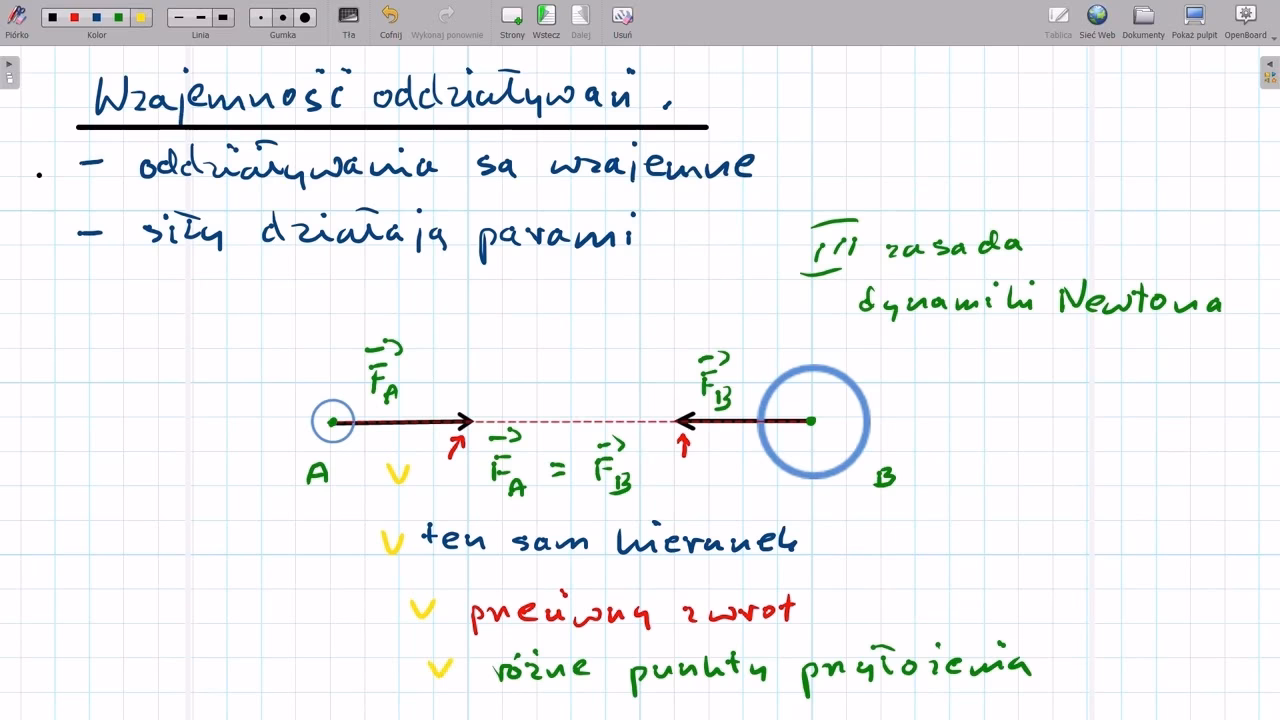 Piórko Kolor Linia Gumka Tła Cofnij Wykonaj ponownie Strony Wstecz Dalej Usuń Tablica Sieć Web Dokumenty Pokaż pulpit OpenBoard
Wzajemność oddziaływań.
- oddziaływania są wzajemne
- siły działają parami
III zasada
dynamiki Newtona
F⃗A F⃗B
A F⃗A = F⃗B B
ten sam kierunek
przeciwny zwrot
różne punkty przyłożenia